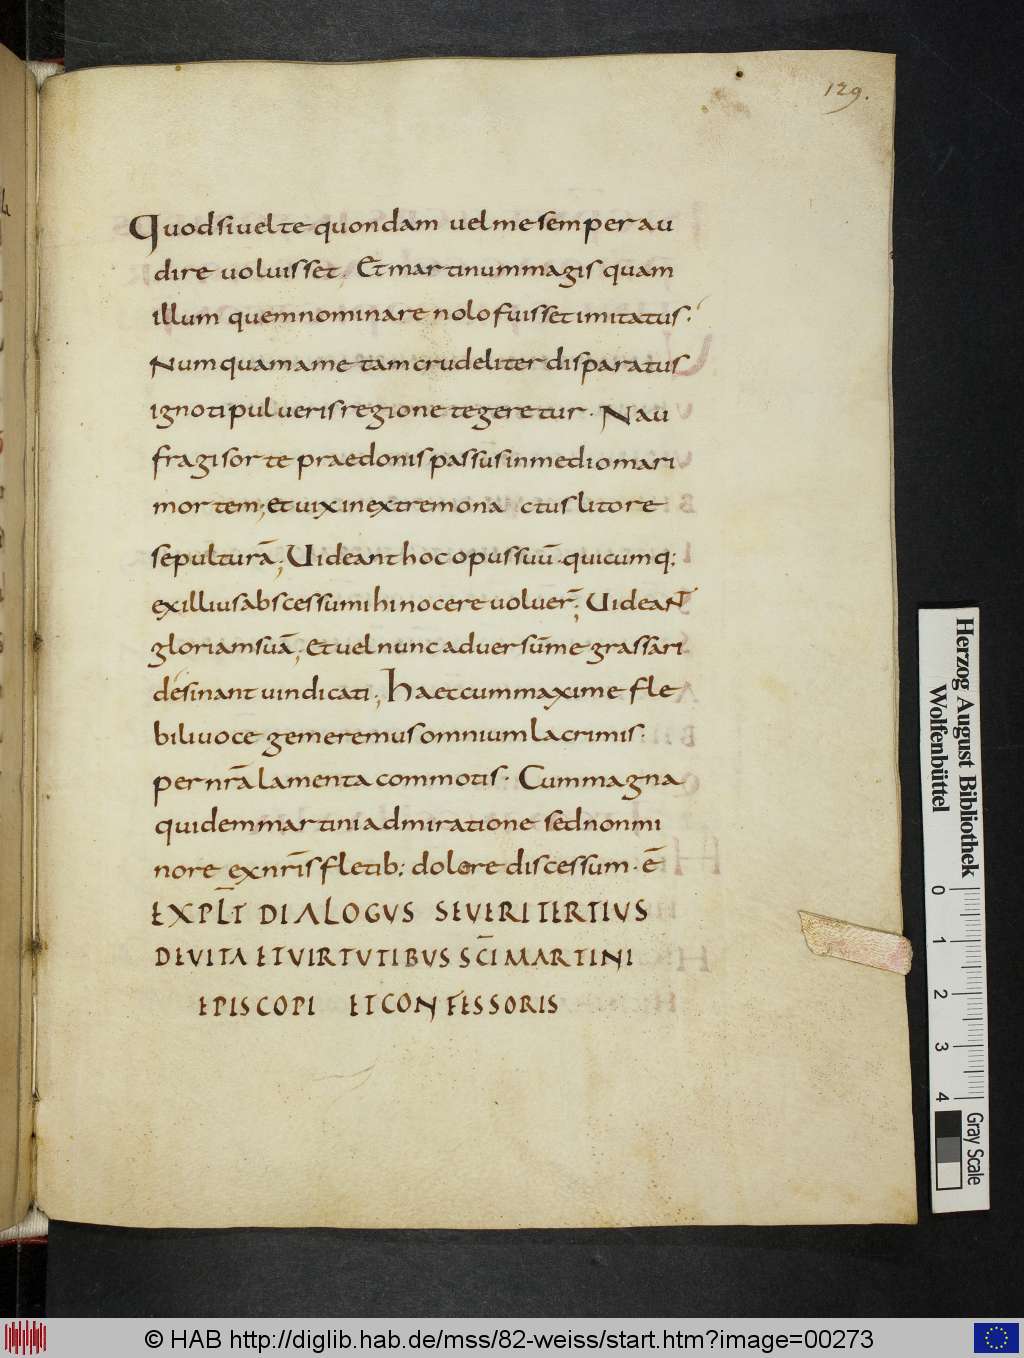 129.
Quod si vel te quondam vel me semper au
dire voluisset. Et martinum magis quam
illum quem nominare nolo fuisset imitatus.
Numquam a me tam crudeliter disparatus
ignoti pulveris regione tegeretur. Nau
fragi sorte praedonis passus in medio mari
mortem; et vix in extremo na ctus litore
sepulturā; Videant hoc opus suū. quicumq;
ex illius abscessu mihi nocere voluer̄; Videant
gloriam suā; et vel nunc adversūme grassari
désinant vindicati; Haec cum maxime fle
bili voce gemeremus omnium lacrimis.
per nr̄a lamenta commotis. Cum magna
quidem martini admiratione sed non mi
nore ex nr̄is fletib; dolore discessum. ē
EXPL̄T DIALOGUS SEVERI TERTIUS
DE VITA ET VIRTUTIBUS SC̄I MARTINI
EPISCOPI ET CONFESSORIS
Herzog August Bibliothek
Wolfenbüttel
0 1 2 3 4
Gray Scale
© HAB http://diglib.hab.de/mss/82-weiss/start.htm?image=00273